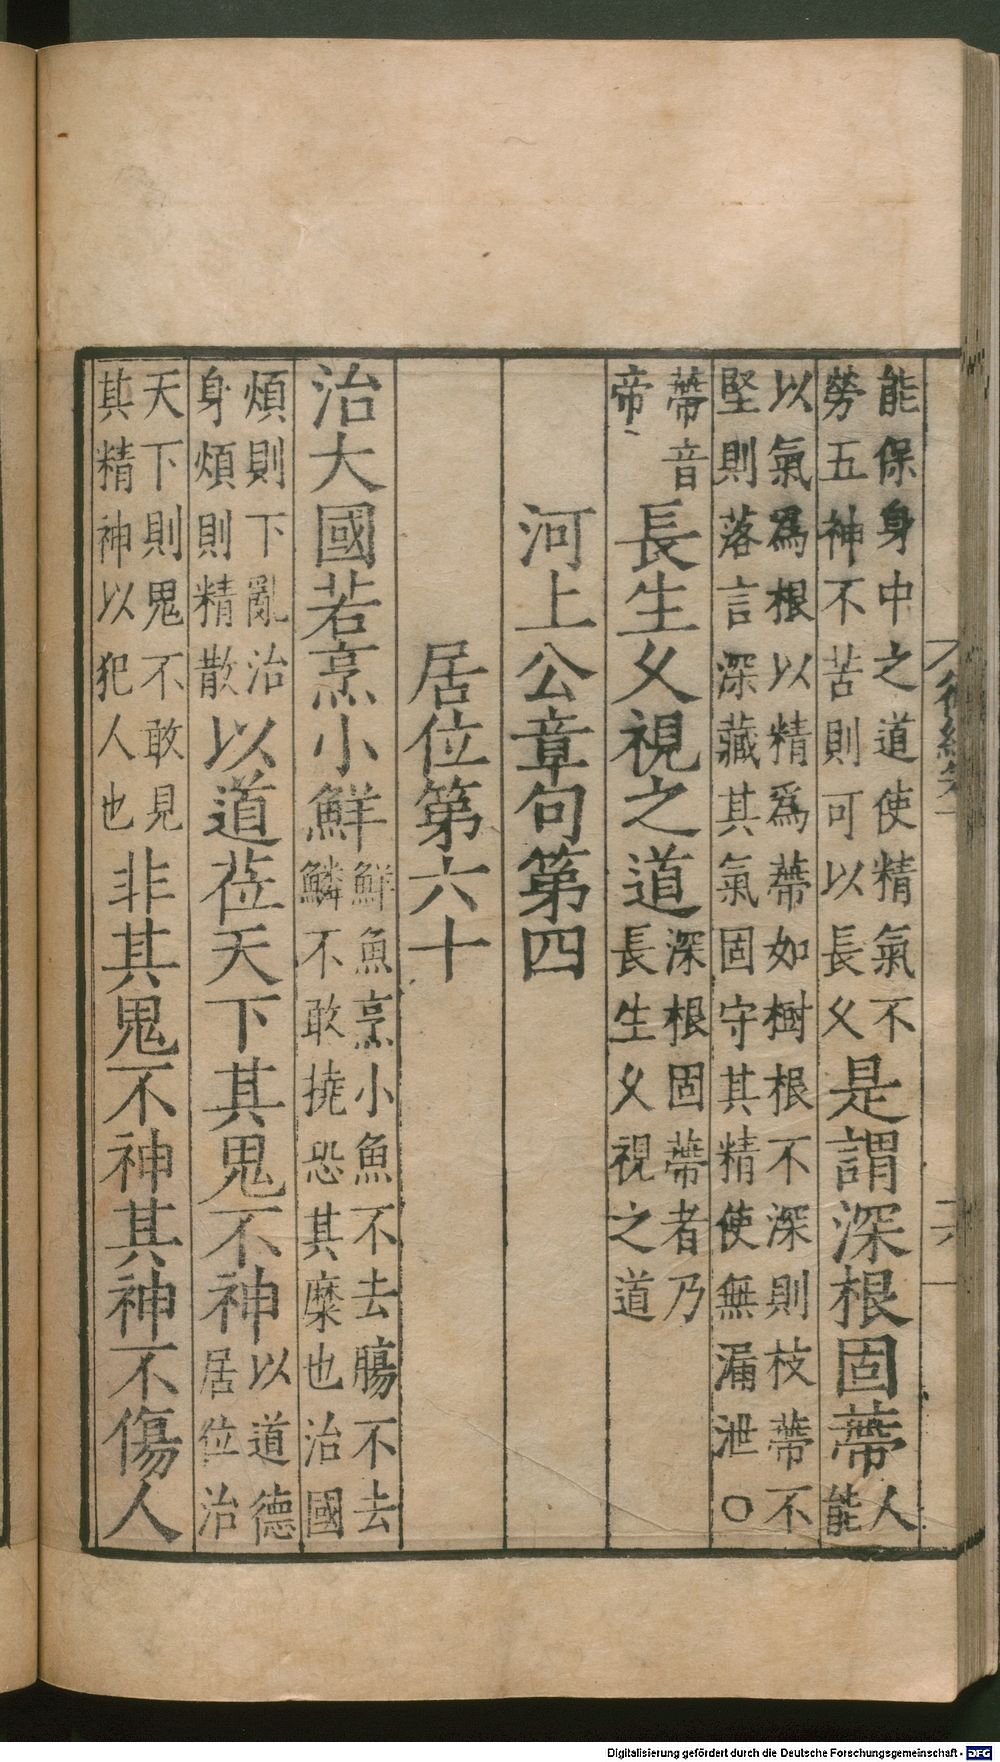 能保身中之道使精氣不
勞五神不苦則可以長乆
是謂深根固蔕
人
能
以氣爲根以精爲蔕如樹根不深則枝蔕不
堅則落言深藏其氣固守其精使無漏泄○
蔕音
帝
長生乆視之道
深根固蔕者乃
長生乆視之道
河上公章句第四
居位第六十
治大國若烹小鮮
鮮魚烹小魚不去膓不去
鱗不敢撓恐其糜也治國
煩則下亂治
身煩則精散
以道莅天下其鬼不神
以道德
居位治
天下則鬼不敢見
其精神以犯人也
非其鬼不神其神不傷人
Digitalisierung gefördert durch die Deutsche Forschungsgemeinschaft - DFG